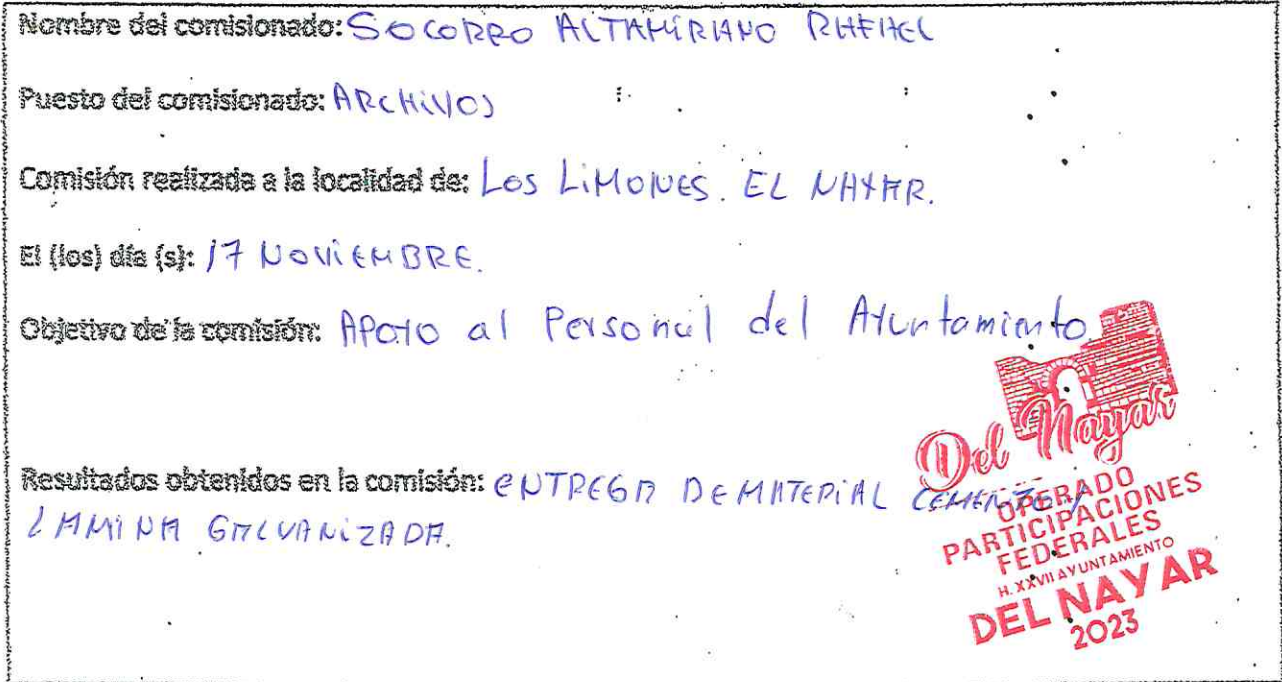 Nombre del comisionado: SOCORRO ALTAMIRIANO RAFAEL
Puesto del comisionado: ARCHIVOS
Comisión realizada a la localidad de: LOS LIMONES. EL NAYAR.
El (los) día (s): 17 NOVIEMBRE.
Objetivo de la comisión: APOYO al Personal del Ayuntamiento.
Resultados obtenidos en la comisión: ENTREGA DE MATERIAL CEMENTO Y
LAMINA GALVANIZADA.
Del Nayar
OPERADO
PARTICIPACIONES
FEDERALES
H. XXVII AYUNTAMIENTO
DEL NAYAR
2023